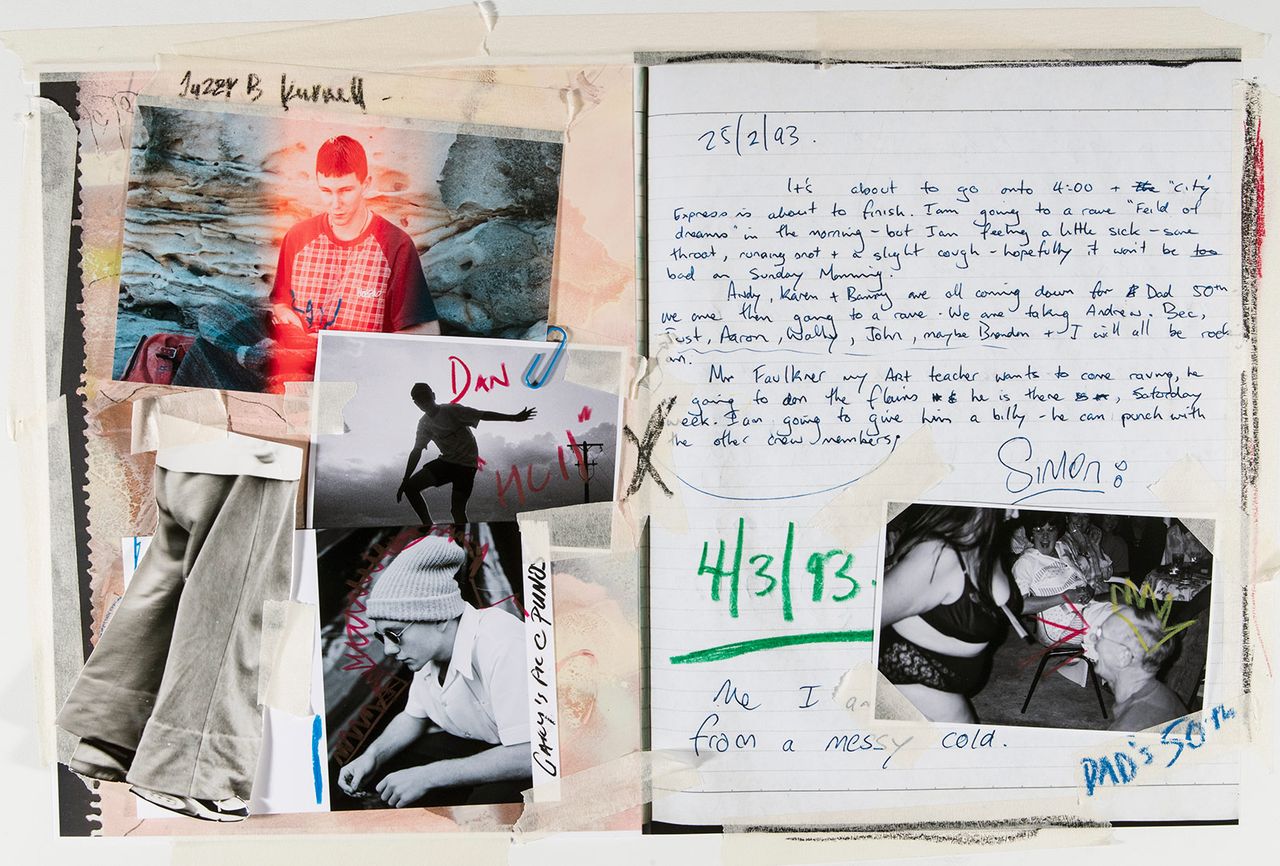 Jazzy B Kurnell -
DAN
"HUIY"
GARY'S PIC C PUND
25/2/93.
It's about to go onto 4:00 + the "City
Express is about to finish. I am going to a rave "Feild of
dreams" in the morning - but I am feeling a little sick - sore
throat, runing snot + a slight cough - hopefully it won't be too
bad on Sunday Morning.
Andy, Karen + Banny are all coming down for Dad 50th
we are then going to a rave. We are taking Andrew, Bec,
Just, Aaron, Wally, John, maybe Brandon + I will all be rock
on.
Mr Faulkner my Art teacher wants to come raving, he
going to don the flairs he is there, Saturday
week. I am going to give him a billy - he can punch with
the other crew members.
SIMON
4/3/93.
Me I a
from a messy cold.
DAD'S 50th